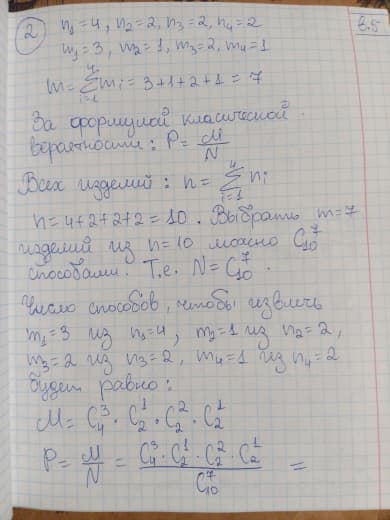 2 n₁=4, n₂=2, n₃=2, n₄=2
m₁=3, m₂=1, m₃=2, m₄=1
m=∑ᵢ₌₁⁴mᵢ=3+1+2+1=7
За формулой класической
вероятности: P=M/N
Всех изделий: n=∑ᵢ₌₁⁴nᵢ
n=4+2+2+2=10. Выбрать m=7
изделий из n=10 можно C₁₀⁷
способами. Т.е. N=C₁₀⁷.
Число способов, чтобы извлечь
m₁=3 из n₁=4, m₂=1 из n₂=2,
m₃=2 из n₃=2, m₄=1 из n₄=2
будет равно:
M=C₄³·C₂¹·C₂²·C₂¹
P=M/N=(C₄³·C₂¹·C₂²·C₂¹)/C₁₀⁷=